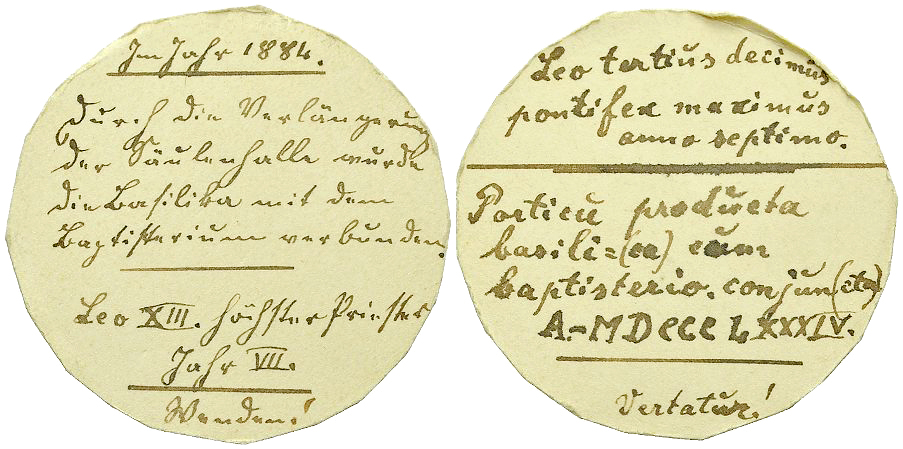 Im Jahr 1884.
Durch die Verlängerung
der Säulenhalle wurde
die Basilika mit dem
Baptisterium verbunden.
Leo XIII. höchster Priester
Jahr VII.
Wenden!
Leo tertius decimus
pontifex maximus
anno septimo.
Porticu producta
basili=(ca) cum
baptisterio. conjun(cta)
A.-MDCCCLXXXIV.
Vertatur!